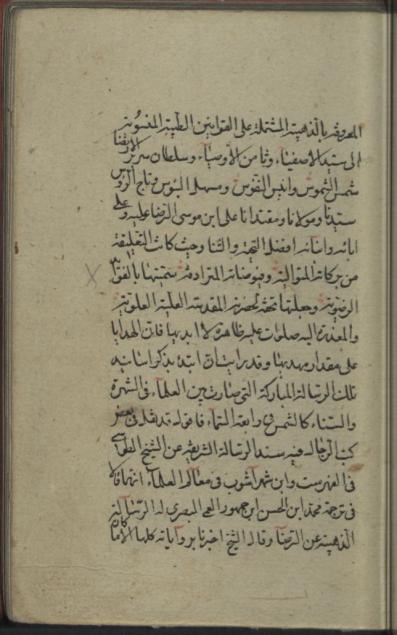 المعروفة بالذهبية المشتملة على القوانين الطبية المنسوبة
الى سيد الاصفياء وثامن الاوصياء وسلطان سرير الارتضا
شمس الشموس وانيس النفوس ومسهل البؤس وتاج الرؤس
سيدنا ومولانا ومقتدانا على ابن موسى الرضا عليه وعلى
ابائه وابنائه افضل التحية والثنا وحيث كانت التعليقة
من بركاته المتوالية وفيوضاته المترادفة سميتها بالفوائد
الرضوية وجعلتها تحفة لحضرته المقدسة العلية العلوية
والمعذرة اليه صلوات عليه ظاهرة لابديها فان الهدايا
على مقدار مهديها وقد رايت ان ابتده بذكر اسانيد
تلك الرسالة المباركة التى صارت بين العلماء فى الشهرة
والسناء كالشمس فى رابعة السماء فاقول قد نقل فى بعض
كتب الرجال فيه سند الرسالة الشريفة عن الشيخ الطوسى
فى الفهرست وابن شهراشوب فى معالم العلماء انهما قالا
فى ترجمة محمد ابن الحسن ابن جمهور العمى البصرى له الرسالة
الذهبية عن الرضا وقال الشيخ اخبرنا برواياته كلها الامام كان